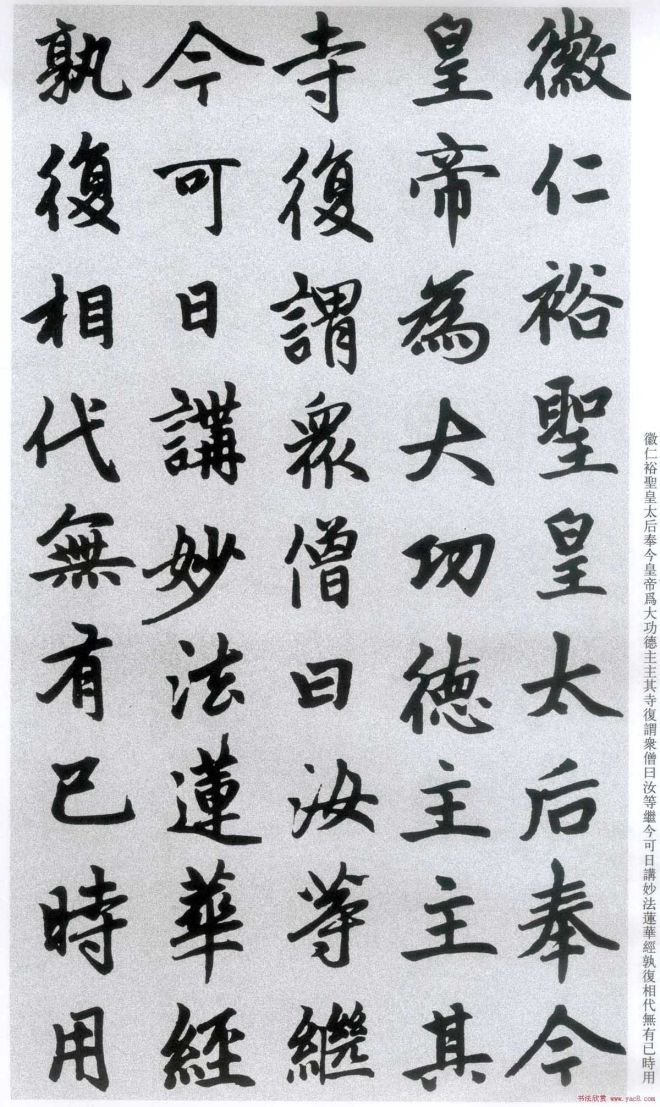 徽仁裕聖皇太后奉今
皇帝為大功德主主其
寺復謂眾僧曰汝等繼
今可日講妙法蓮華經
孰復相代無有已時用
徽仁裕聖皇太后奉今皇帝爲大功德主主其寺復謂衆僧曰汝等繼今可日講妙法蓮華經孰復相代無有已時用
书法欣赏 www.yac8.com